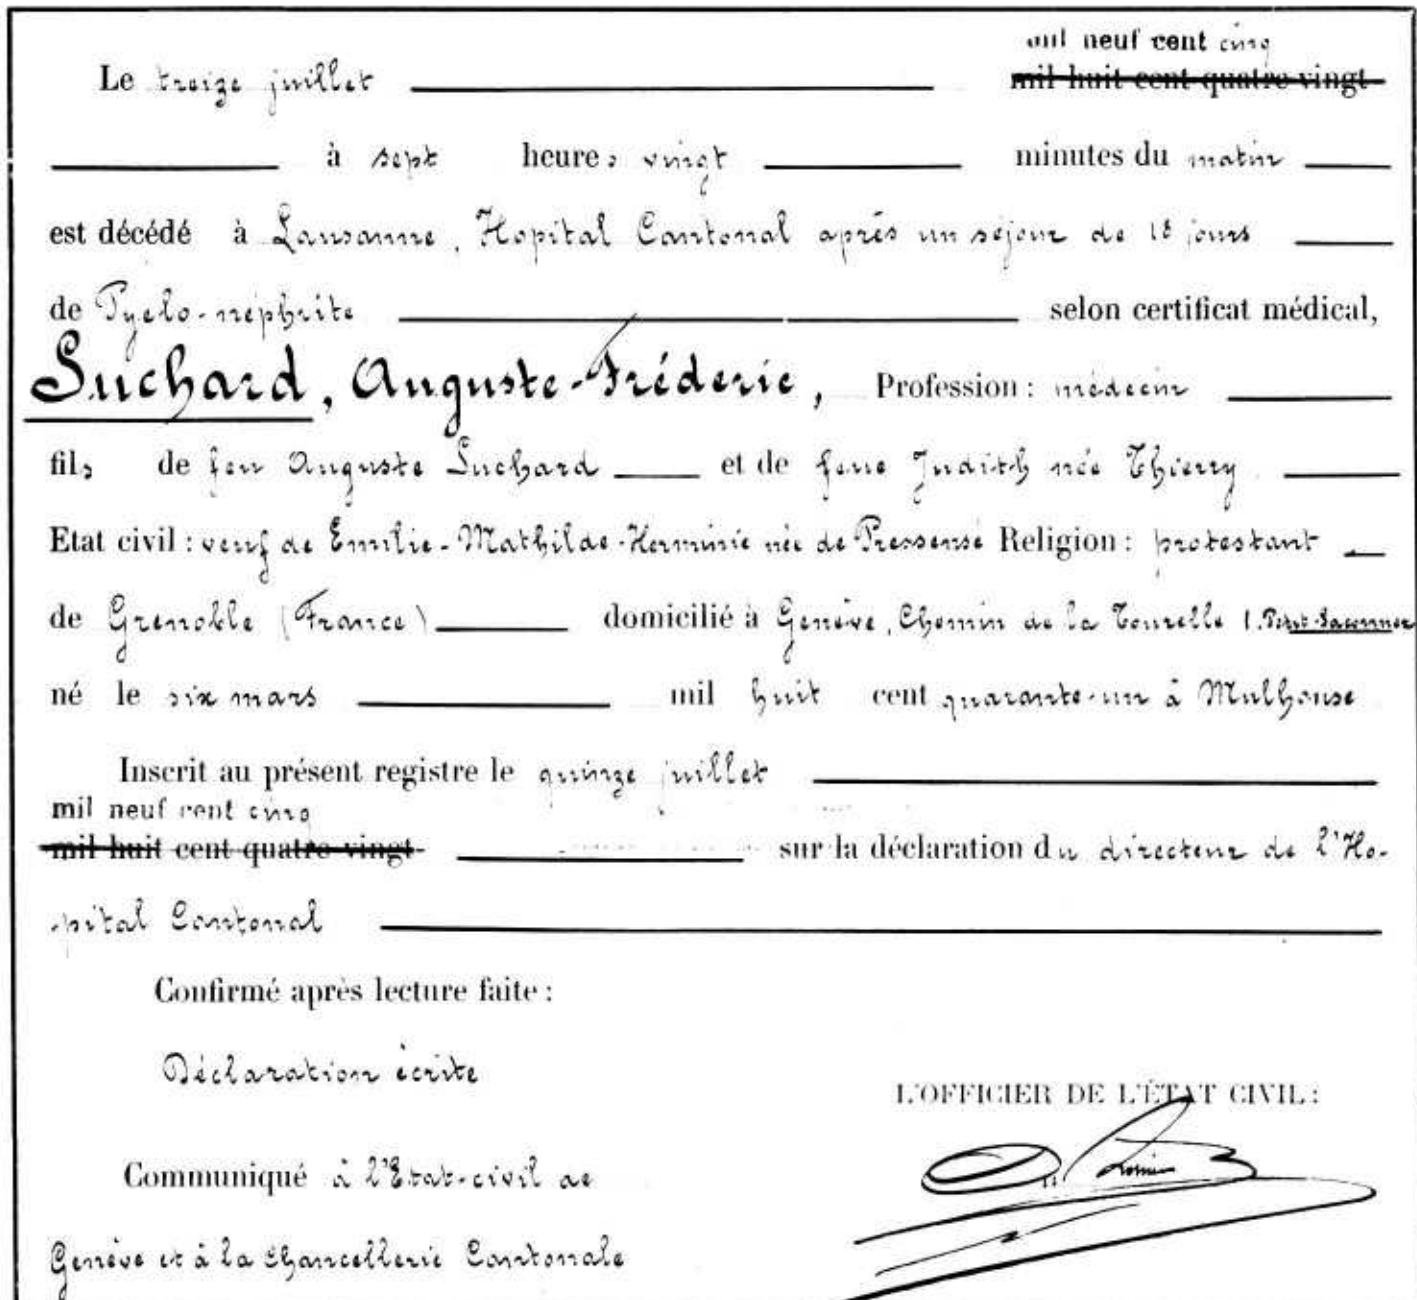 mil neuf cent cinq
Le treize juillet mil huit cent quatre-vingt-
à sept heures vingt minutes du matin
est décédé à Lausanne, Hopital Cantonal après un séjour de 18 jours
de Pyelo-néphrite selon certificat médical,
Suchard, Auguste-Fréderic, Profession : médecin
fils de feu Auguste Suchard et de feue Judith née Thierry
Etat civil : veuf de Emilie-Mathilde-Herminie née de Pressensé Religion : protestant
de Grenoble (France) domicilié à Genève, Chemin de la Tourelle 1. Petit-Saconnex
né le six mars mil huit cent quarante-un à Mulhouse
Inscrit au présent registre le quinze juillet
mil neuf cent cinq
mil huit cent quatre-vingt- sur la déclaration du directeur de l'Ho-
pital Cantonal
Confirmé après lecture faite :
Déclaration écrite
L'OFFICIER DE L'ÉTAT CIVIL :
Communiqué à l'Etat-civil de
Genève et à la Chancellerie Cantonale